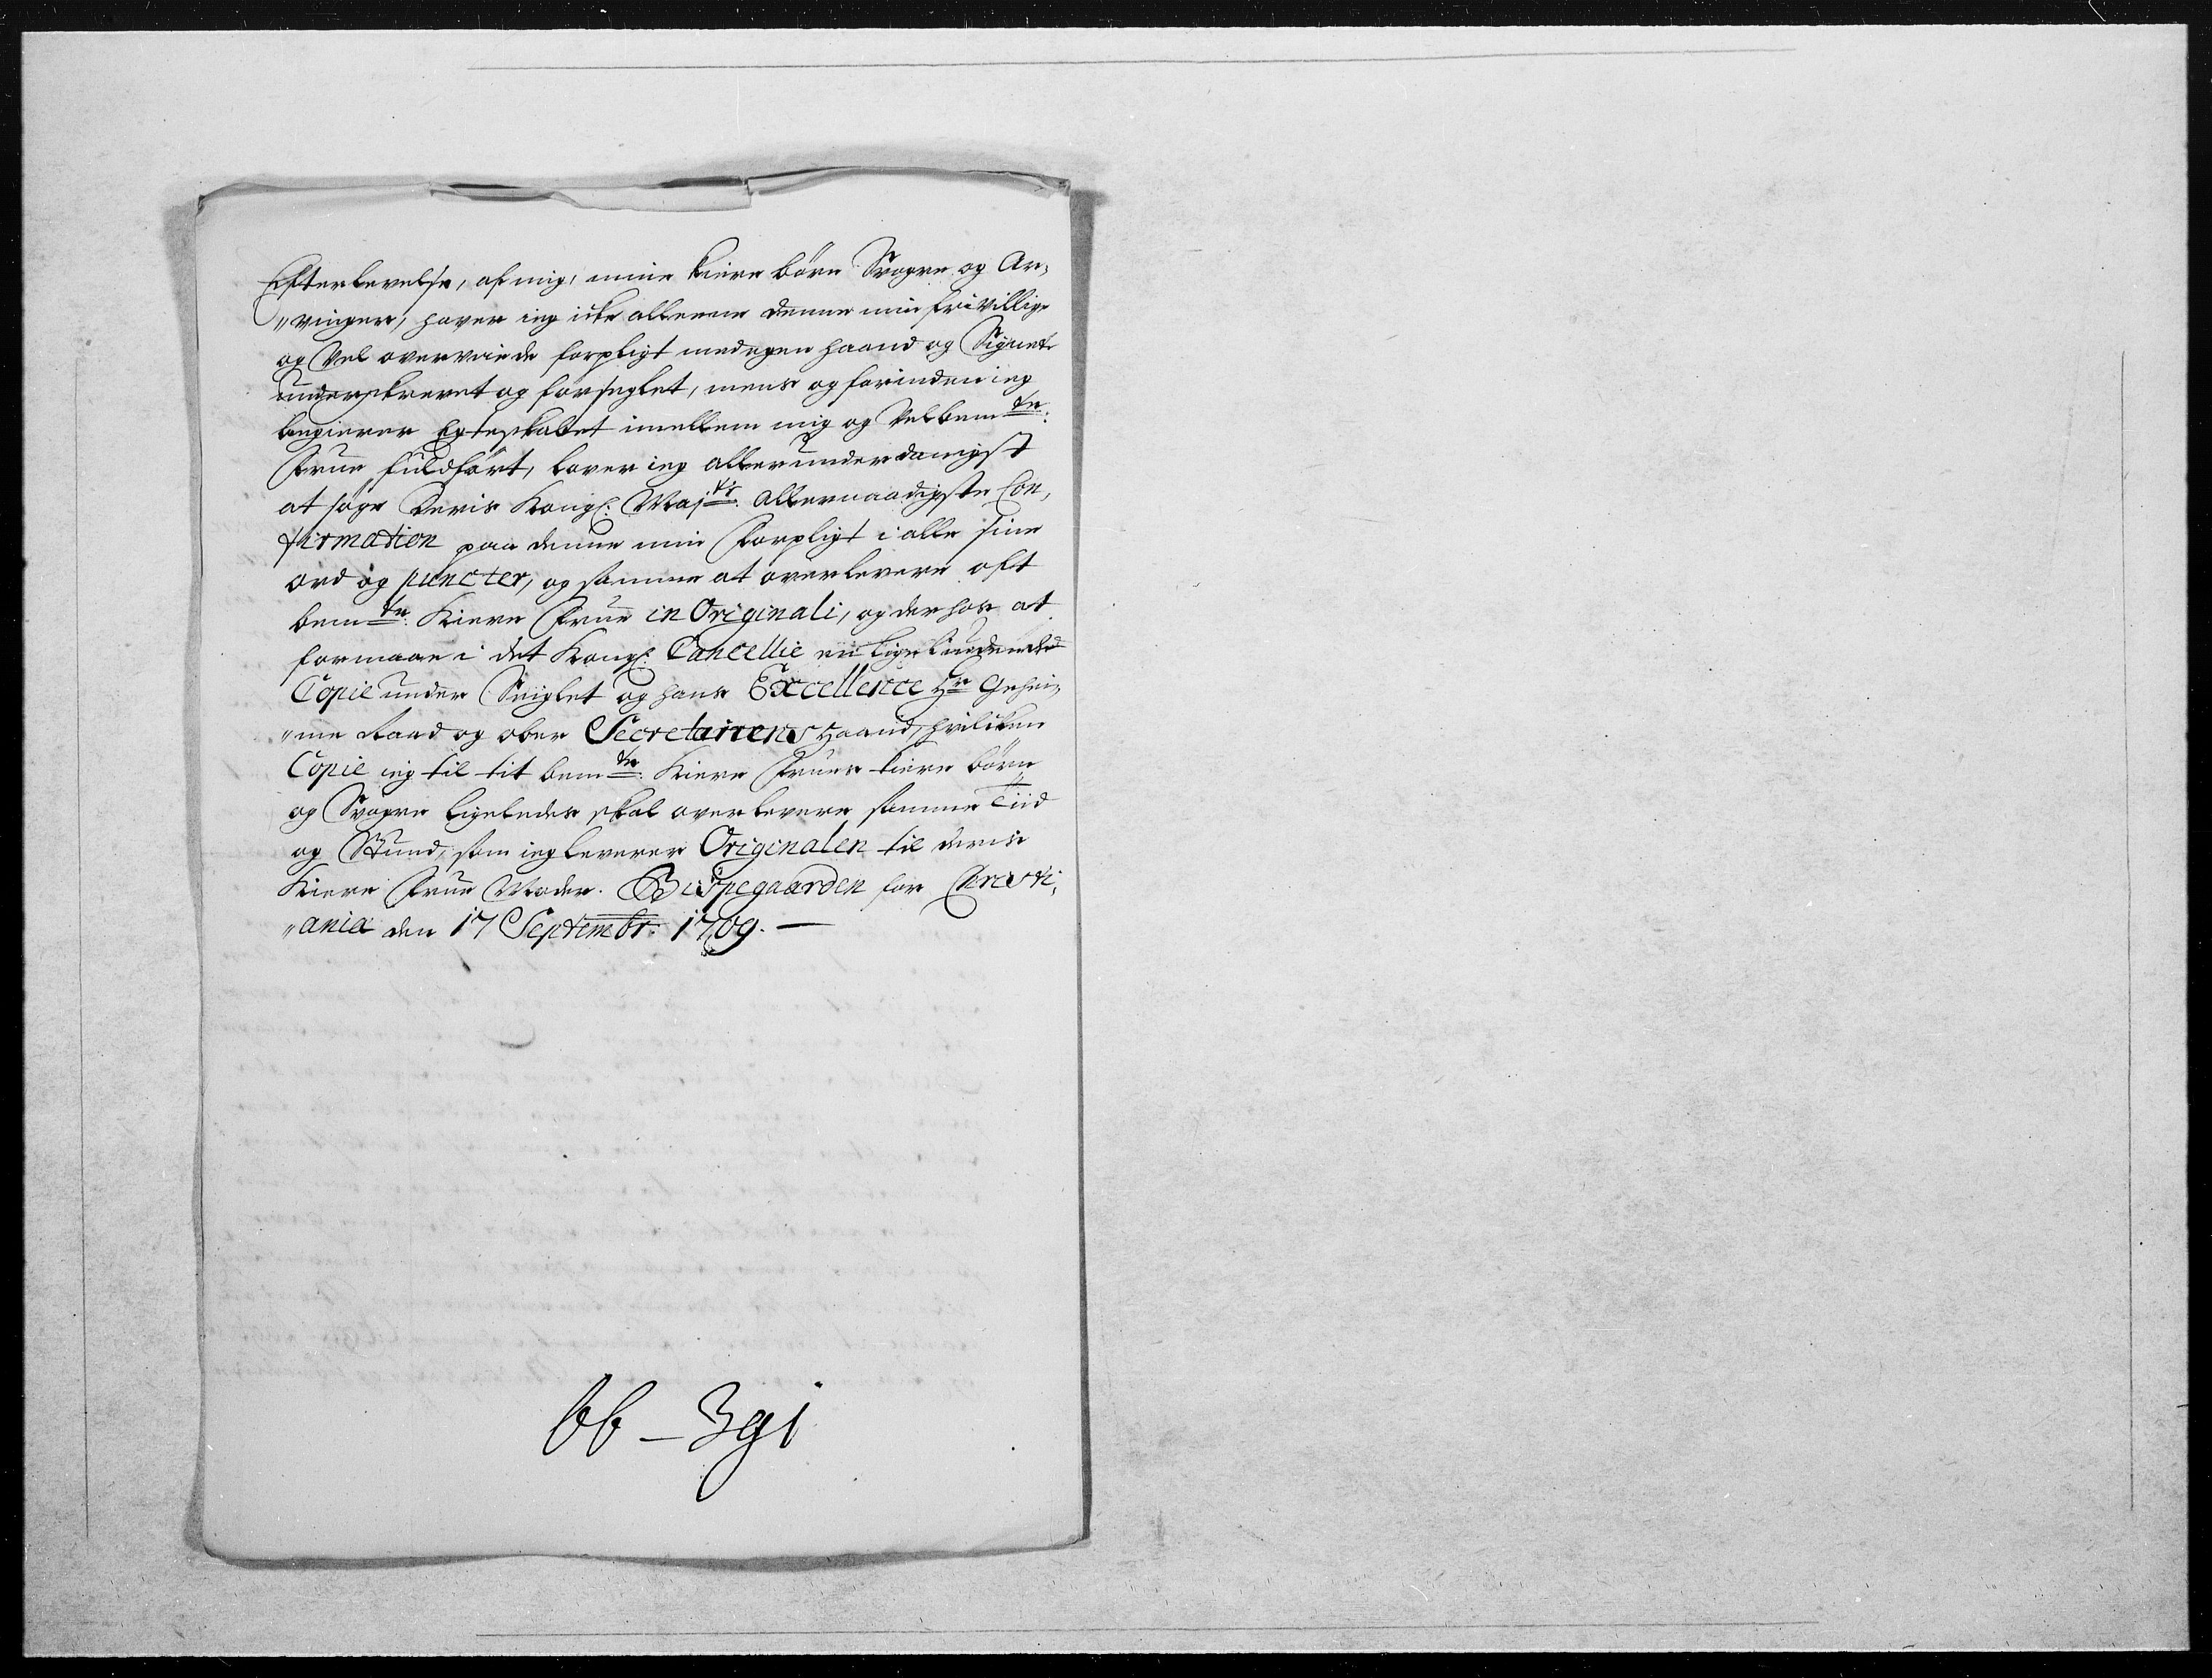 Efterlevelse, af mig, mine kiere børn Svogre og Ar,
"vinger, haver ieg icke alleene denne min frivillige
og Vel overveiede forpligt med egen haand og Signete
underskrevet og forseglet, mens og forinden ieg
begierer Egteskabet imellem mig og Velbem.te
Frue fuldført, lover ieg allerunderdanigst
at søge Deris Kongl: Maj.ts Allernaadigste Con,
firmation paa denne min Forpligt i alle sine
ord og puncter, og samme at overlevere oft
bem.te Kiere Frue in Originali, og der hos at
formaae i det Kongl: Cancellie en lige liudende
Copie under Seiglet og hans Excellence Hr Gehei,
"me Raad og ober Secretairens Haand, hvilcken
Copie ieg til tit bem.te Kiere Frues kiere børn
og Svogre ligeledes skal overlevere samme Tiid
og Stund, som ieg leverer Originalen til deris
Kiere Frue Moder. Bispegaarden for Christi,
"ania den 17 Septembr: 1709. —
bb – 391